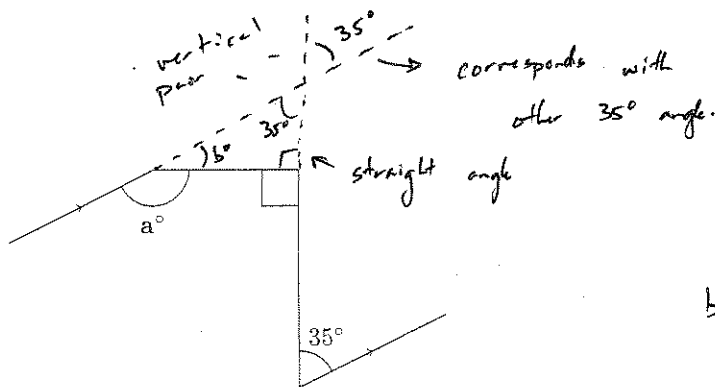 vertical
pair
35°
corresponds with
other 35° angle.
35°
b°
straight angle
a°
35°
b